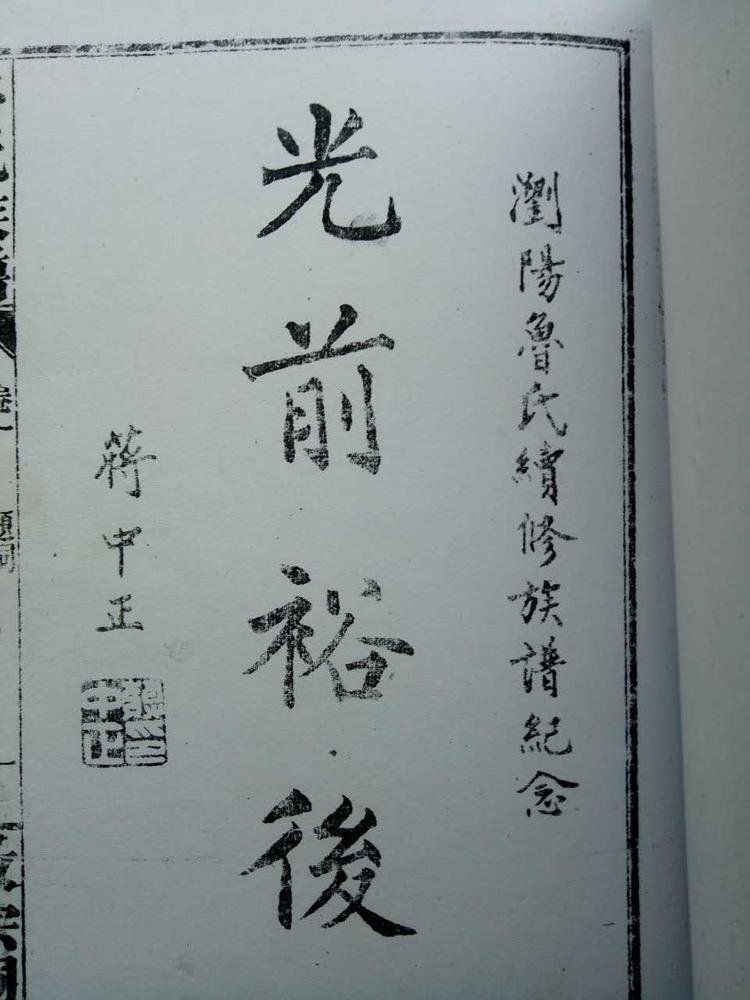 瀏陽魯氏續修族譜紀念
光前裕後
蔣中正
卷一
題詞